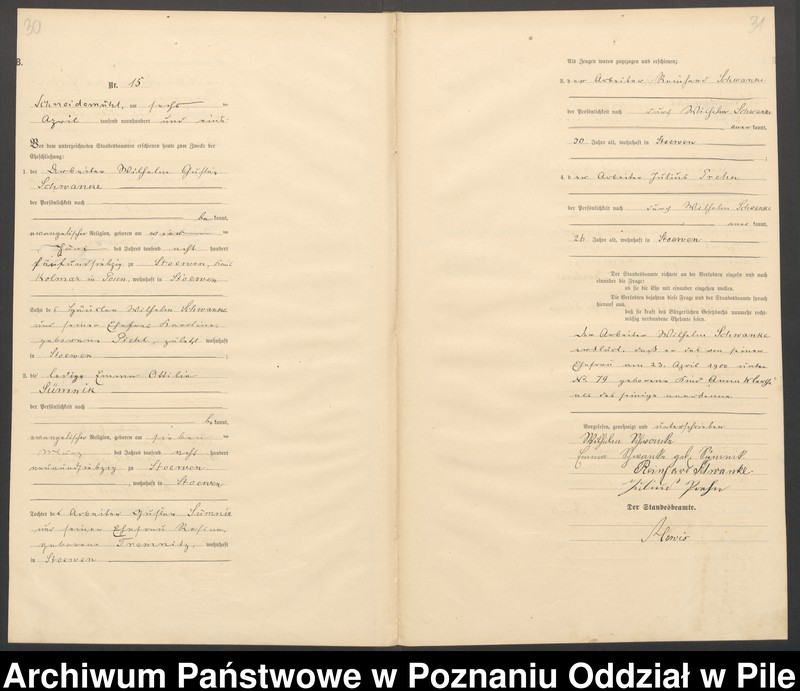 30
B.
Nr. 15
Schneidemühl, am sechs ten
April tausend neunhundert und eins
Vor dem unterzeichneten Standesbeamten erschienen heute zum Zwecke der
Eheschließung:
1. der Arbeiter Wilhelm Gustav
Schwancke
der Persönlichkeit nach
be kannt,
evangelischer Religion, geboren am vier ten
des Jahres tausend acht hundert
fünfundsiebzig zu Stoewen, Kreis
Kolmar in Posen, wohnhaft in Stoewen
Sohn des Häusler Wilhelm Schwanke
und seiner Ehefrau Karoline
geborene zuletzt wohnhaft
in Stoewen ;
2. die ledige Emma Ottilie
Sümnik
der Persönlichkeit nach
be kannt,
evangelischer Religion, geboren am sieben ten
März des Jahres tausend acht hundert
neunundsiebzig zu Stoewen
, wohnhaft in Stoewen
Tochter des Arbeiter Gustav Sümnik
und seiner Ehefrau Rosine,
geborene Tremnitz, wohnhaft
in Stoewen
31
Als Zeugen waren zugezogen und erschienen:
3. der Arbeiter Reinhard Schwanke
der Persönlichkeit nach durch Wilhelm Schwanke
aner kannt,
30 Jahre alt, wohnhaft in Stoewen
;
4. der Arbeiter Julius Prehn
der Persönlichkeit nach durch Wilhelm Schwanke
aner kannt,
26 Jahre alt, wohnhaft in Stoewen
Der Standesbeamte richtete an die Verlobten einzeln und nach
einander die Frage:
ob sie die Ehe mit einander eingehen wollen.
Die Verlobten bejahten diese Frage und der Standesbeamte sprach
hierauf aus,
daß sie kraft des Bürgerlichen Gesetzbuchs nunmehr recht-
mäßig verbundene Eheleute seien.
Der Arbeiter Wilhelm Schwanke
erklärt, daß er das von seiner
Ehefrau am 23. April 1900 unter
No. 79 geborene Kind Anna
als das seinige anerkenne
Vorgelesen, genehmigt und unterschrieben
Wilhelm Schwanke
Emma Schwanke geb. Sümnik
Reinhard Schwanke
Julius Prehn
Der Standesbeamte.
Archiwum Państwowe w Poznaniu Oddział w Pile